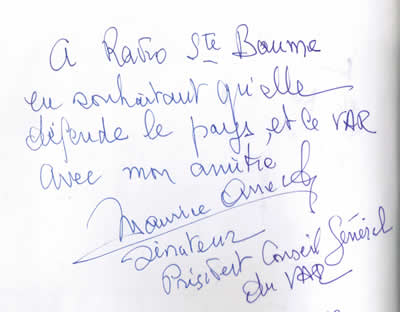 A Radio Ste Baume
en souhaitant qu'elle
défende le pays, et le VAR
avec mon amitié
Maurice Arreckx
Sénateur
Président Conseil Général
du VAR